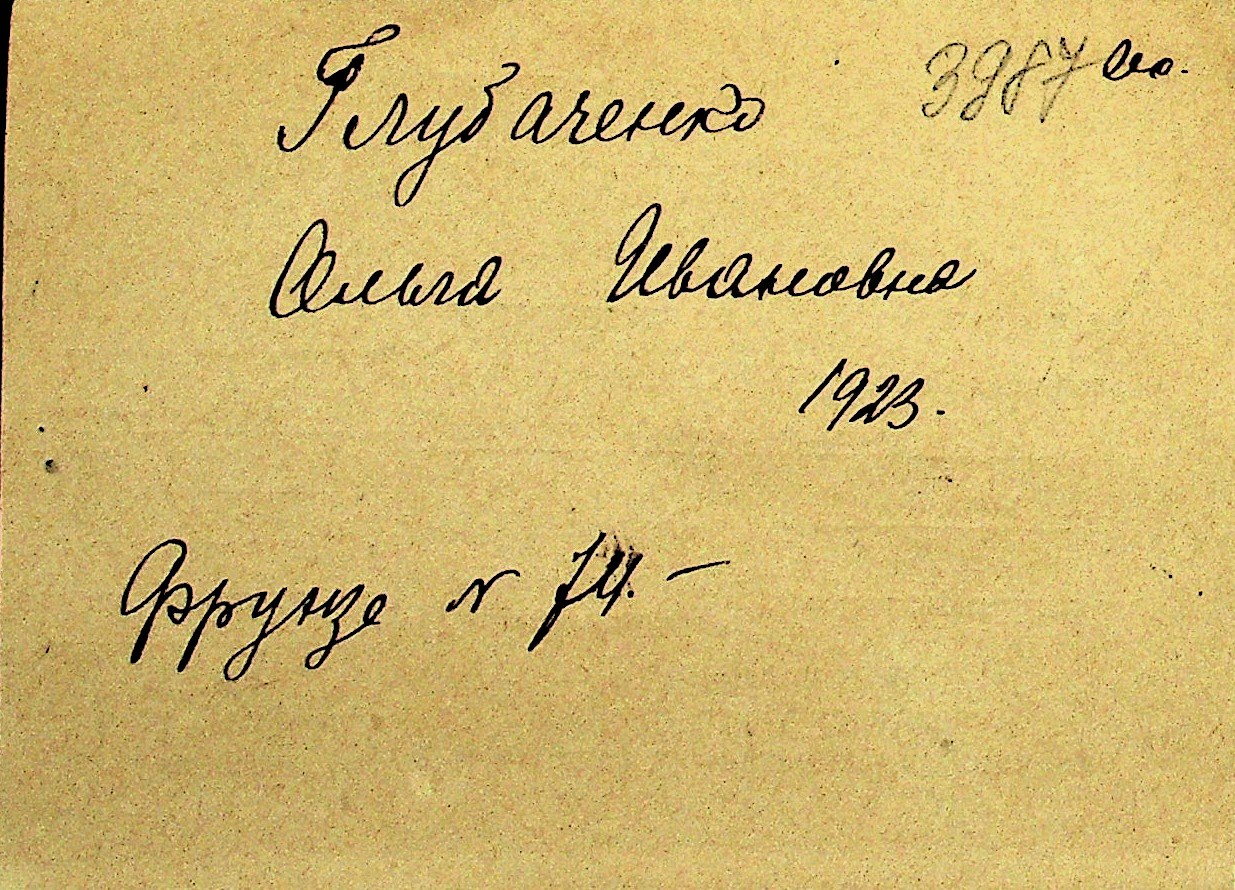 3987
Глубаченко
Ольга Ивановна
1923.
Фрунзе N 74. –